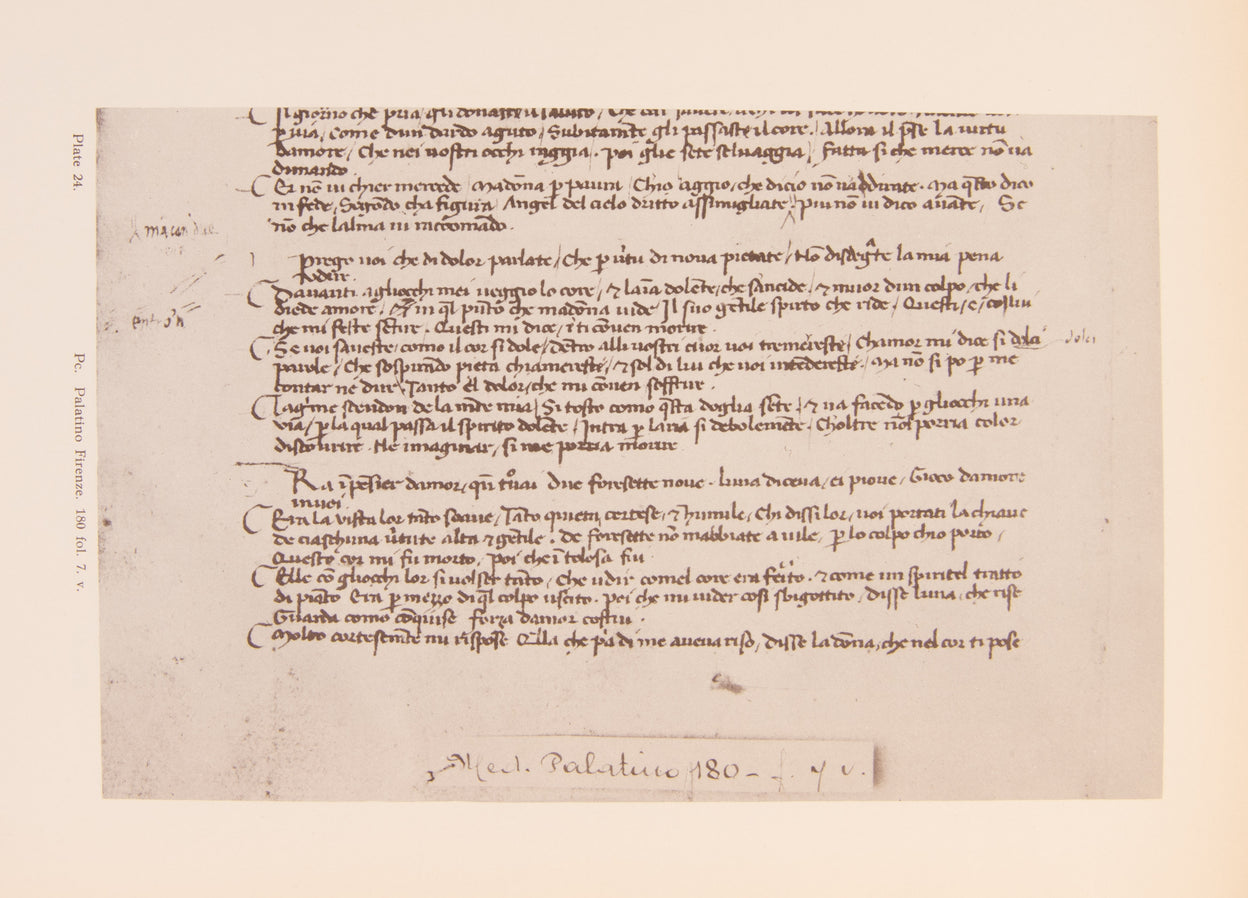 Plate 24.
Pc. Palatino Firenze. 180 fol. 7. v.
Il giorno che pria gli donaste il saluto /
p uia, Come dun dardo aguto, Subitamẽte gli passaste il core. Allora il pse la uirtu
damore, Che nei uostri occhi raggia. poi glie sete seluaggia, fatta si che merce nõ ua
dimando.
Et nõ ui chier mercede Madõna p paura Chio aggio, che dicio nõ ua ddirate. Ma qsto dico
in fede, Segõdo cha figura Angel del cielo dritto assimigliate. piu nõ ui dico auãte, Se
nõ che lalma ui raccomãdo.
Prego uoi che di dolor parlate, Che p utu di noua pietate, Nõ disdegte la mia pena
Davanti agliocchi mei ueggio lo core, & laĩa dolẽte, che sancide, & muor dun colpo, che li
diede amore, & in ql pũto che madõna uide Il suo gẽtile spirito che ride, Questi e, coslui
che mi feste sẽtire. Questi mi dice, i ti cõuen morire.
Se uoi saueste, como il cor si dole, dẽtro alli uostri cuor uoi tremereste, Chamor mi dice si dolci dolci
parole, Che sospirãdo pieta chiamereste, & sol di lui che uoi intẽdereste. Ma nõ si po p me
contar ne dire Tanto El dolor, che mi cõuen soffrire.
Lagme scendon de la mẽte mia, Si tosto como qsta doglia sẽte, & ua facẽdo p gliocchi una
via, p la qual passa il spirito dolẽte, Intra p laria si debolemẽte. Choltre nõ porria color
discourire. Ne imaginar, si me porria morire
Ra ĩ pẽsier damor, qñ tuai Due foresette noue. luna diceua, ei pioue, Gioco damore
in uoi.
Era la uista lor tãto soaue, Tãto quieta, cortese, & humile, Chi dissi lor, uoi portati la chiaue
de ciaschuna utute alta & gẽtile. de foresette nõ mabbiate a uile, p lo colpo chio porto,
Questo cor mi fu morto, poi che ĩ tolosa fui.
Elle cõ gliocchi lor si uolser tãto, Che udir comel core era ferito. & come un spiritel tratto
di piãto Era p mezzo di ql colpo uscito. poi che mi uider cosi sbigottito, disse luna, che rise
Guarda como cõquise forza damor costui.
Molto cortesemẽte mi rispose Ella che pa di me aueua riso, disse la dõna, che nel cor ti pose
Med. Palatino 180 - f. 7 v.